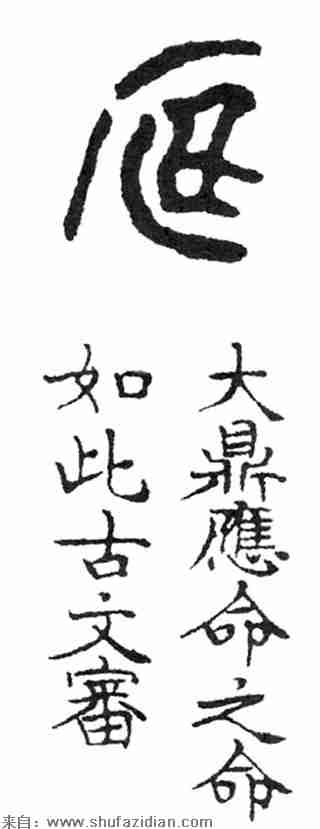 大鼎應命之命
如此古文審
来自：www.shufazidian.com